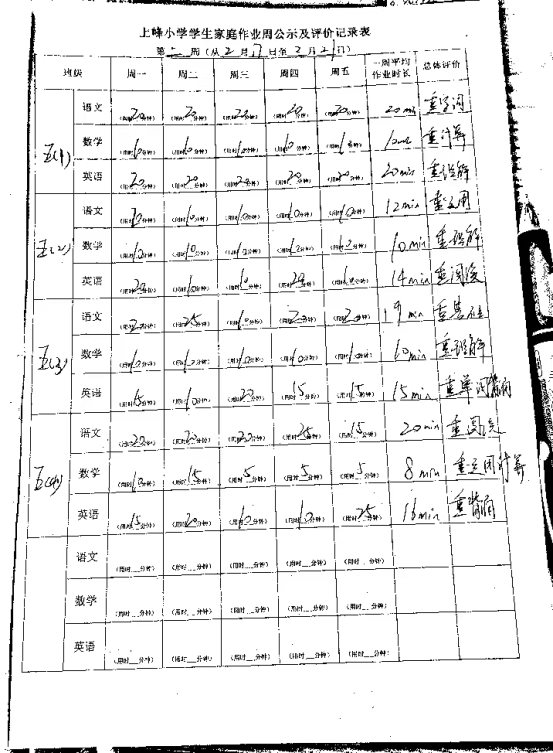 上峰小学学生家庭作业周公示及评价记录表
第二周(从2月17日至2月21日)
班级 周一 周二 周三 周四 周五 一周平均作业时长 总体评价
五(1) 语文 (用时20分钟) (用时20分钟) (用时20分钟) (用时20分钟) (用时20分钟) 20min 重字词
数学 (用时10分钟) (用时10分钟) (用时10分钟) (用时10分钟) (用时10分钟) 10min 重计算
英语 (用时20分钟) (用时20分钟) (用时20分钟) (用时20分钟) (用时20分钟) 20min 重理解
五(2) 语文 (用时20分钟) (用时10分钟) (用时10分钟) (用时10分钟) (用时10分钟) 12min 重运用
数学 (用时10分钟) (用时10分钟) (用时10分钟) (用时10分钟) (用时10分钟) 10min 重理解
英语 (用时20分钟) (用时10分钟) (用时分钟) (用时20分钟) (用时10分钟) 14min 重阅读
五(3) 语文 (用时分钟) (用时25分钟) (用时10分钟) (用时分钟) (用时分钟) 19min 重
数学 (用时10分钟) (用时10分钟) (用时10分钟) (用时10分钟) (用时10分钟) 10min 重理解
英语 (用时15分钟) (用时10分钟) (用时20分钟) (用时15分钟) (用时15分钟) 15min 重单词背诵
五(4) 语文 (用时20分钟) (用时20分钟) (用时20分钟) (用时25分钟) (用时15分钟) 20min 重阅读
数学 (用时10分钟) (用时15分钟) (用时5分钟) (用时5分钟) (用时5分钟) 8min 重运用计算
英语 (用时15分钟) (用时20分钟) (用时10分钟) (用时10分钟) (用时25分钟) 16min 重背诵
语文 (用时__分钟) (用时__分钟) (用时__分钟) (用时__分钟) (用时__分钟)
数学 (用时__分钟) (用时__分钟) (用时__分钟) (用时__分钟) (用时__分钟)
英语 (用时__分钟) (用时__分钟) (用时__分钟) (用时__分钟) (用时__分钟)